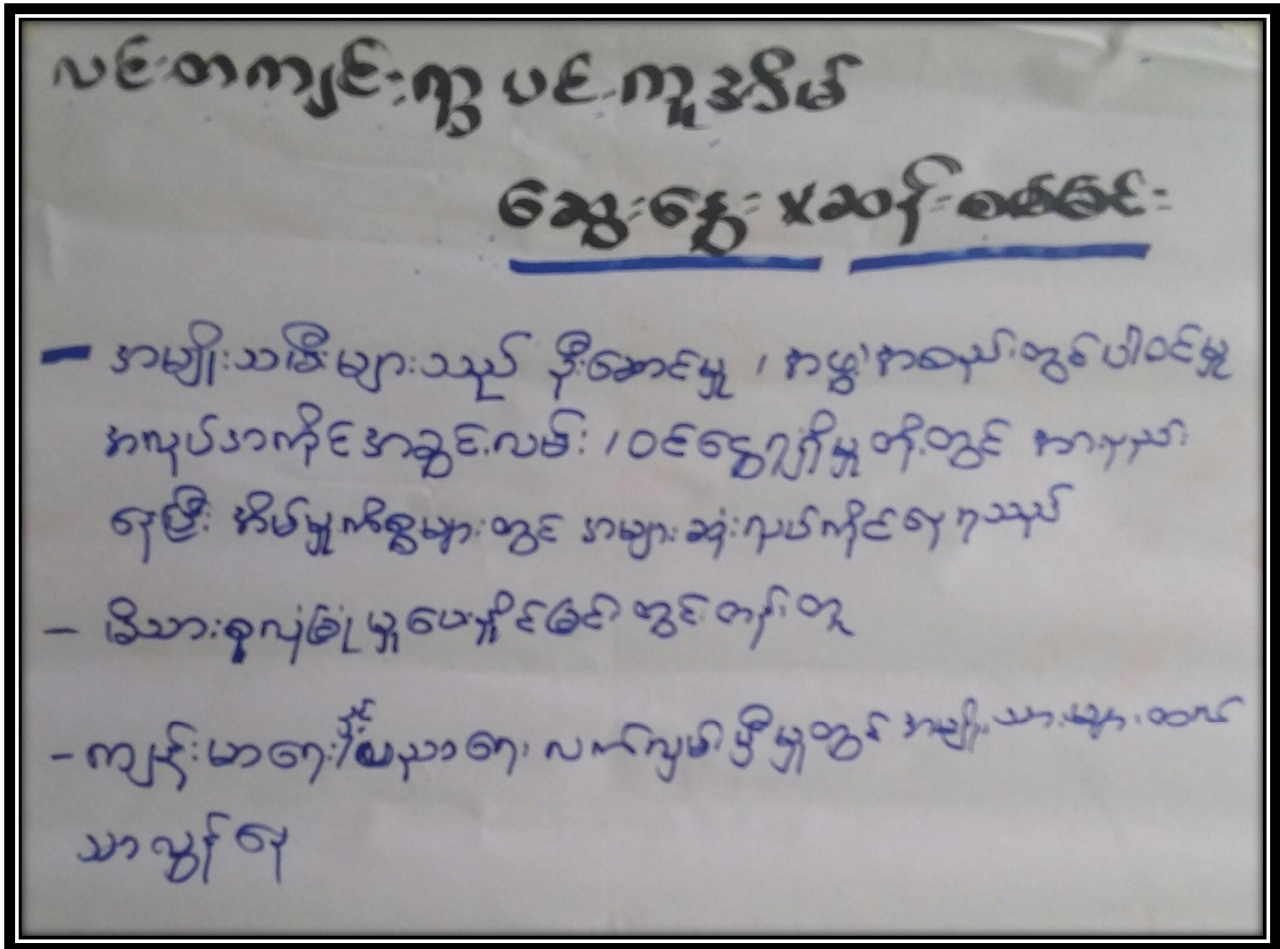 လင်းတကျင်းရွာ ပင်ကူအိမ်
ဆွေးနွေး ဆန်းစစ်ခြင်း
- အမျိုးသမီးများသည် ဦးဆောင်မှု / အဖွဲ့အစည်းတွင်ပါဝင်မှု
အလုပ်အကိုင်အခွင့်လမ်း / ဝင်ငွေရရှိမှု တို့တွင် အားနည်း
နေပြီး အိမ်မှုကိစ္စများတွင် အများဆုံးလုပ်ကိုင်နေရသည်
- မိသားစုလုံခြုံမှုပေးနိုင်ခြင်းတွင် တန်းတူ
- ကျန်းမာရေး/ ပညာရေး လက်လှမ်းမှီမှုတွင် အမျိုးသားများထက်
သာလွန်နေ